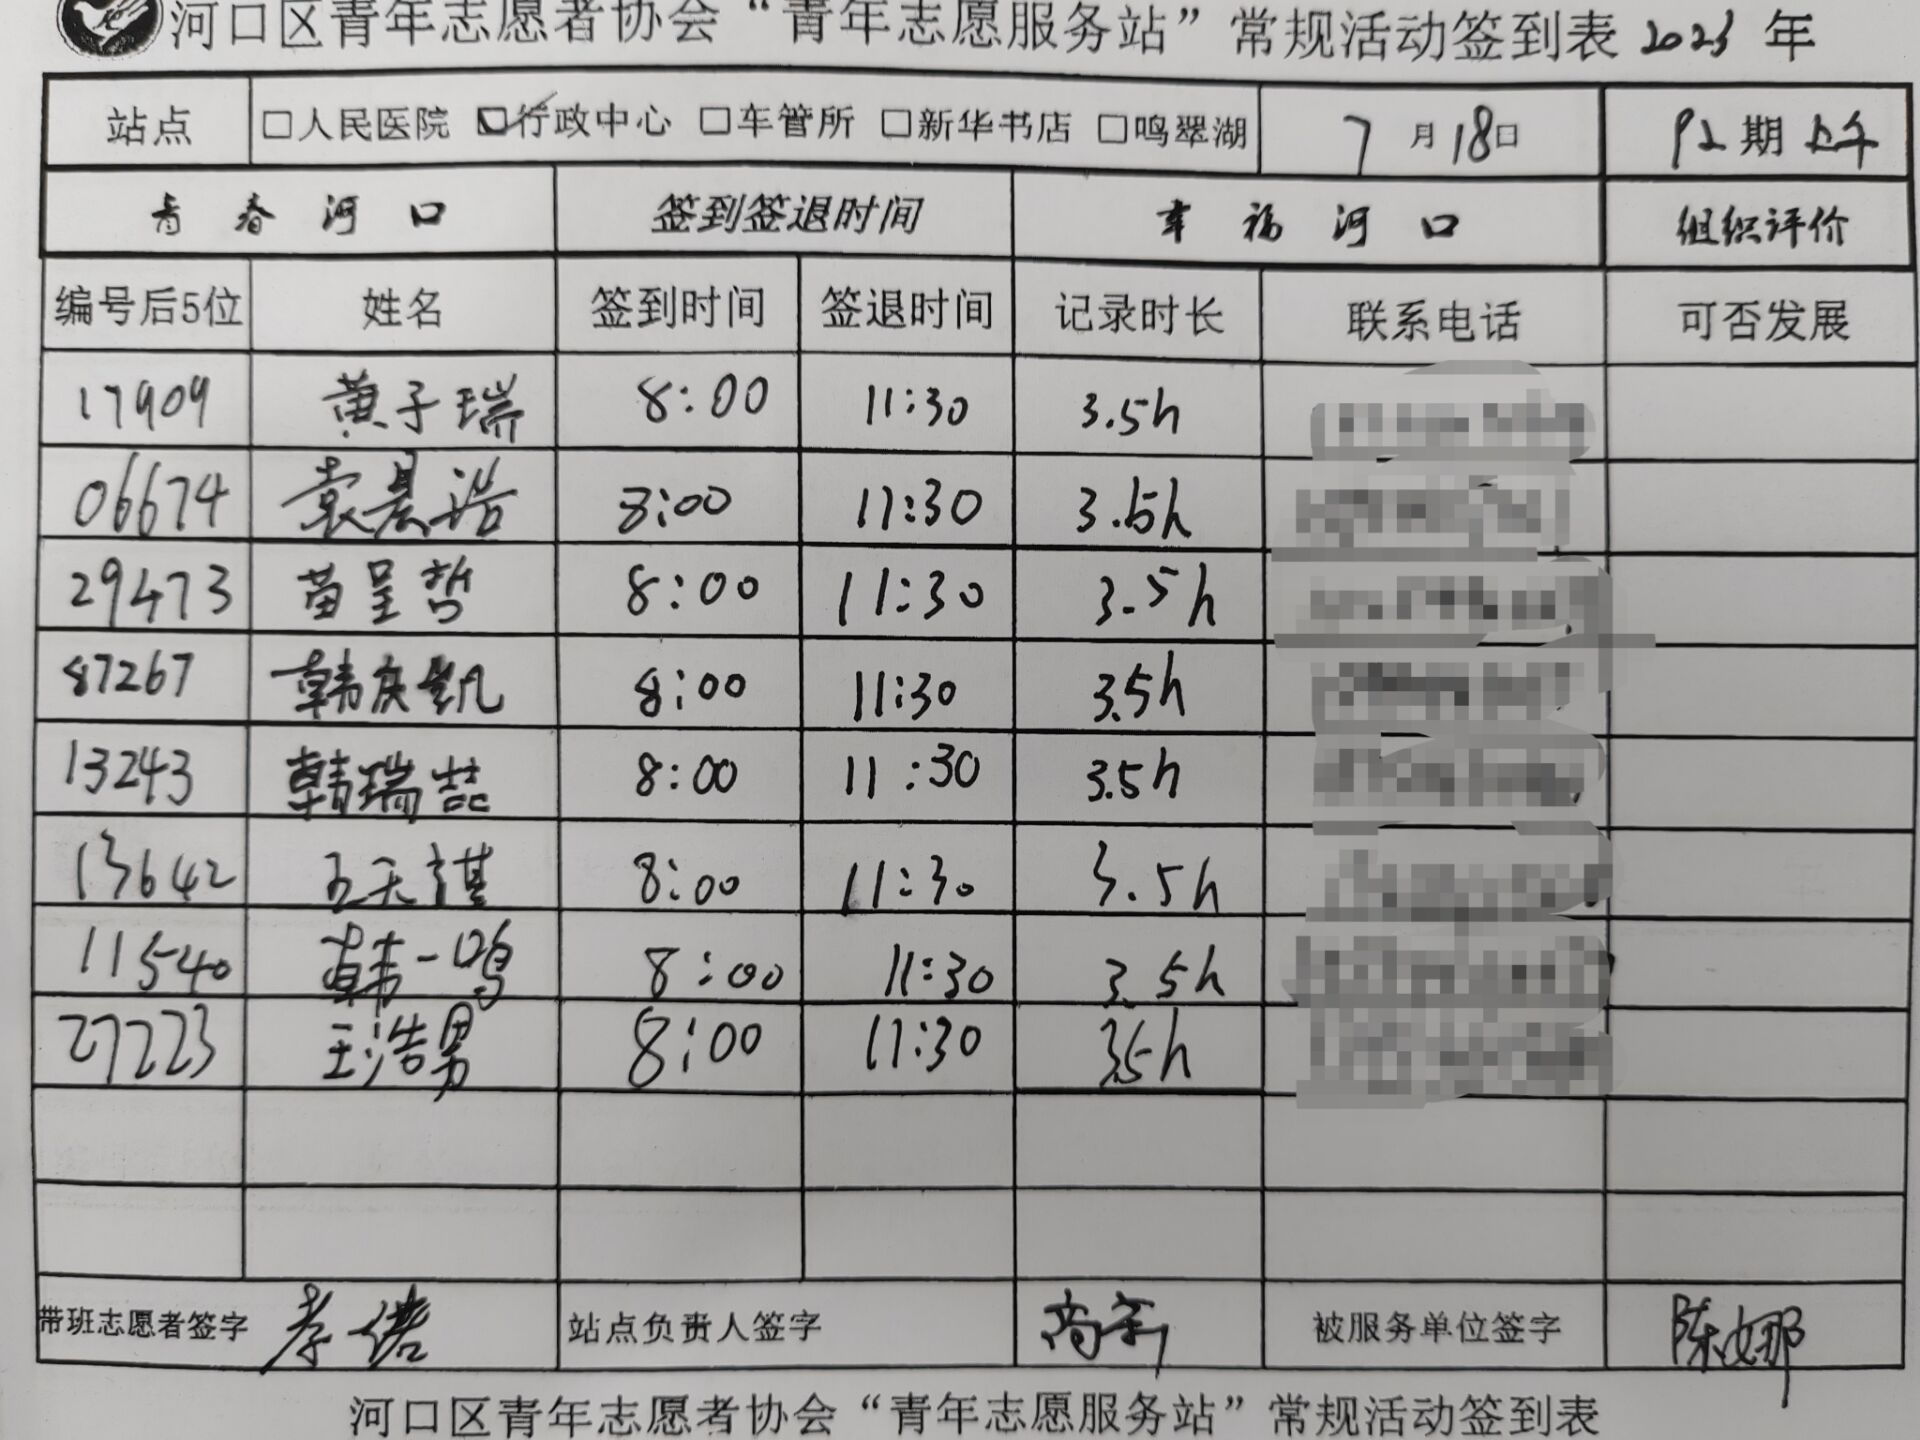 河口区青年志愿者协会“青年志愿服务站”常规活动签到表 2023 年
站点 □人民医院 ☑行政中心 □车管所 □新华书店 □鸣翠湖 7月18日 92期 上午
青春河口 签到签退时间 幸福河口 组织评价
编号后5位 姓名 签到时间 签退时间 记录时长 联系电话 可否发展
17909 黄子瑞 8:00 11:30 3.5h
06674 袁晨浩 8:00 11:30 3.5h
29473 苗呈哲 8:00 11:30 3.5h
87267 韩庆凯 8:00 11:30 3.5h
13243 韩瑞喆 8:00 11:30 3.5h
13642 王天祺 8:00 11:30 3.5h
11540 韩一鸣 8:00 11:30 3.5h
27223 王浩男 8:00 11:30 3.5h
带班志愿者签字 站点负责人签字 被服务单位签字 陈娜
河口区青年志愿者协会“青年志愿服务站”常规活动签到表